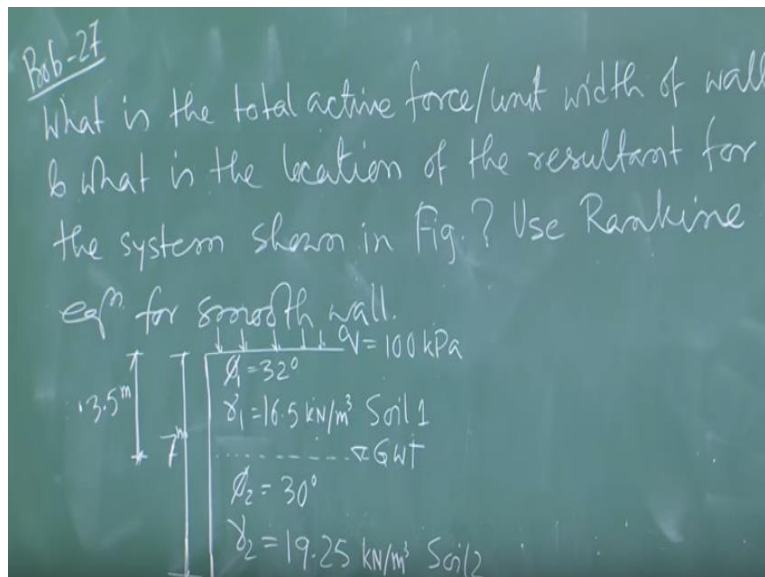 Prob-27
What is the total active force/unit width of wall
& what is the location of the resultant for
the system shown in Fig.? Use Rankine
eqn. for smooth wall.
q = 100 kPa
ϕ₁ = 32°
3.5 m
γ₁ = 16.5 kN/m³ Soil 1
7 m
GWT
ϕ₂ = 30°
γ₂ = 19.25 kN/m³ Soil 2